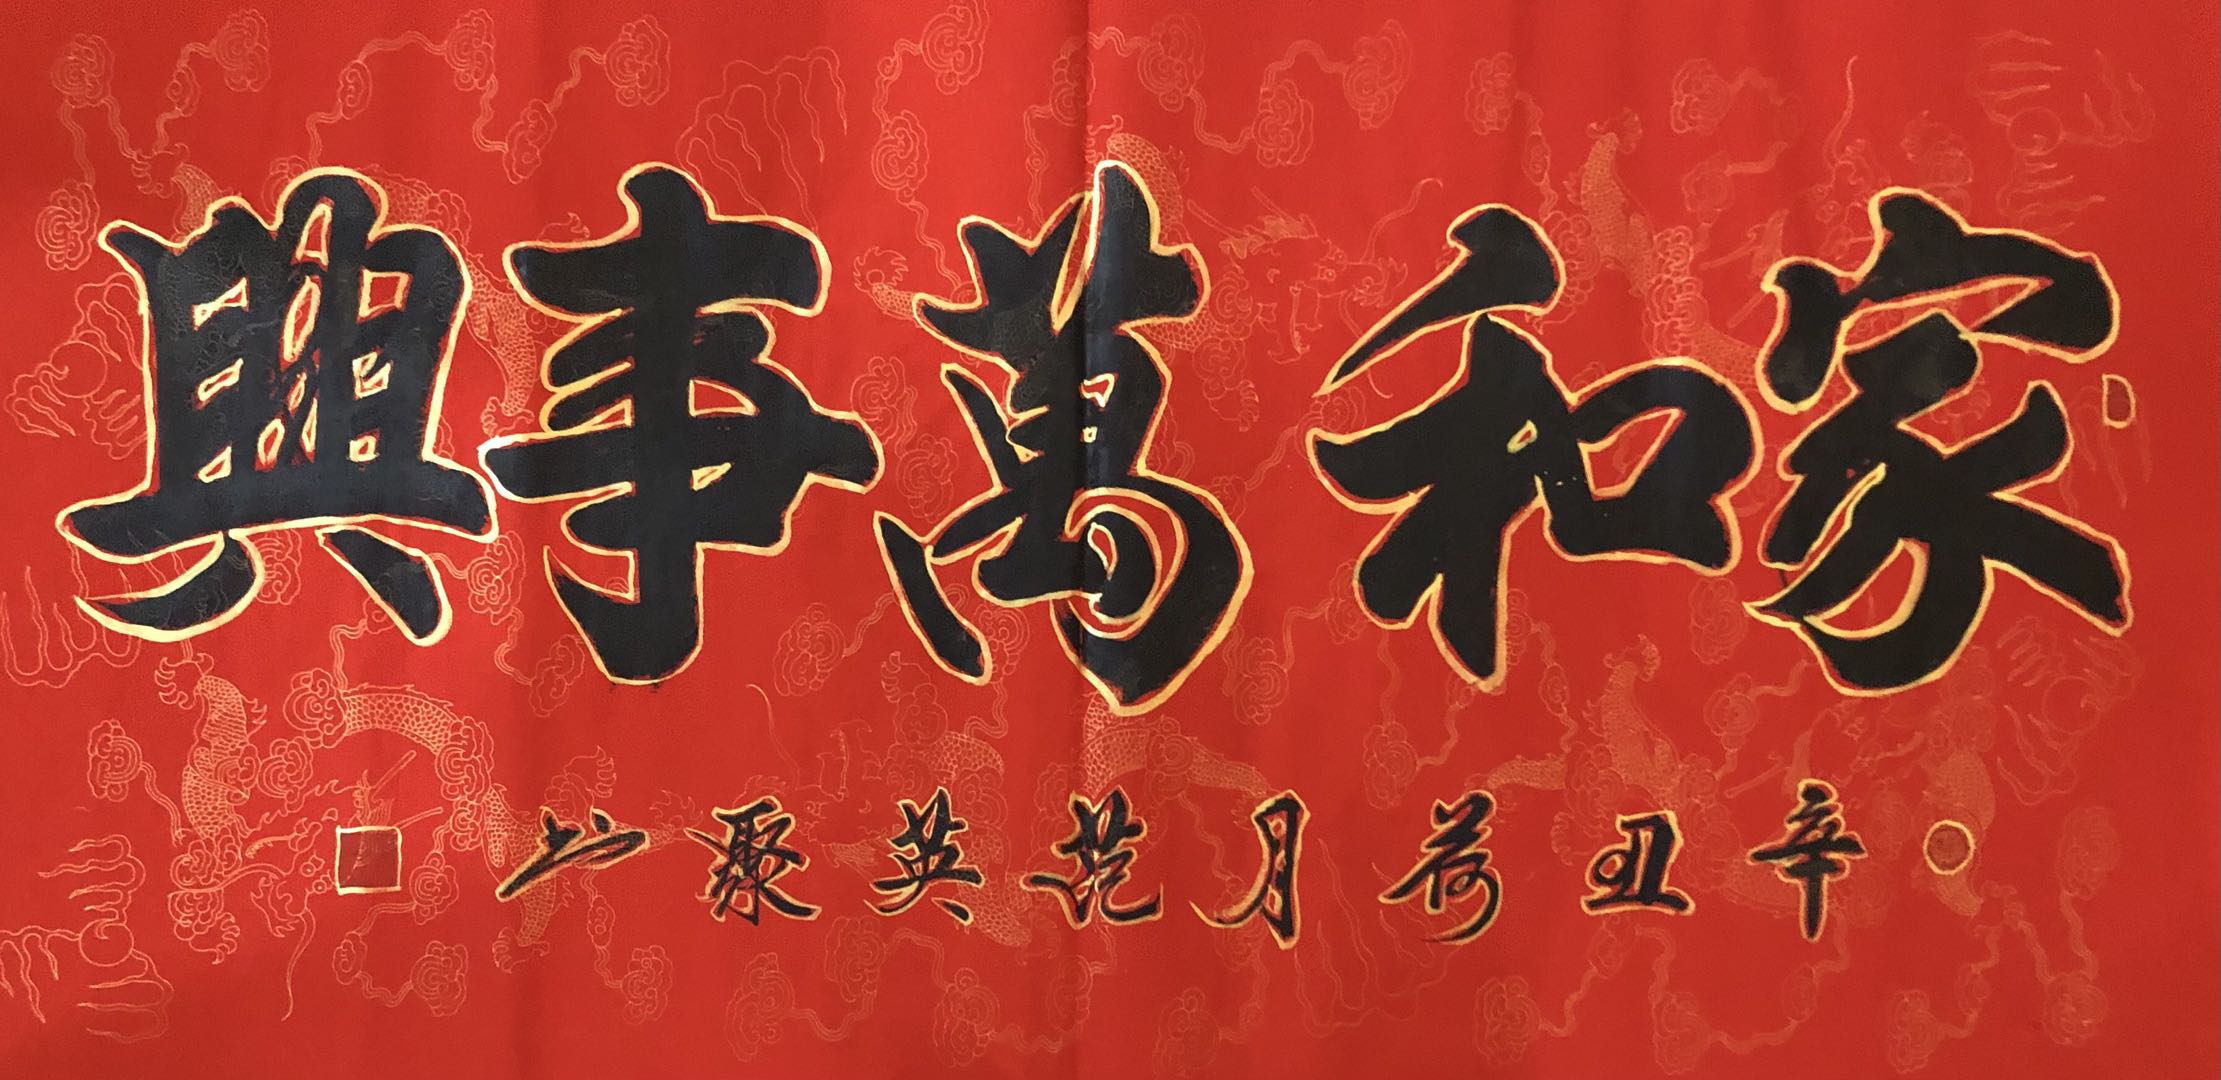 家和萬事興
辛丑荷月范英聚书